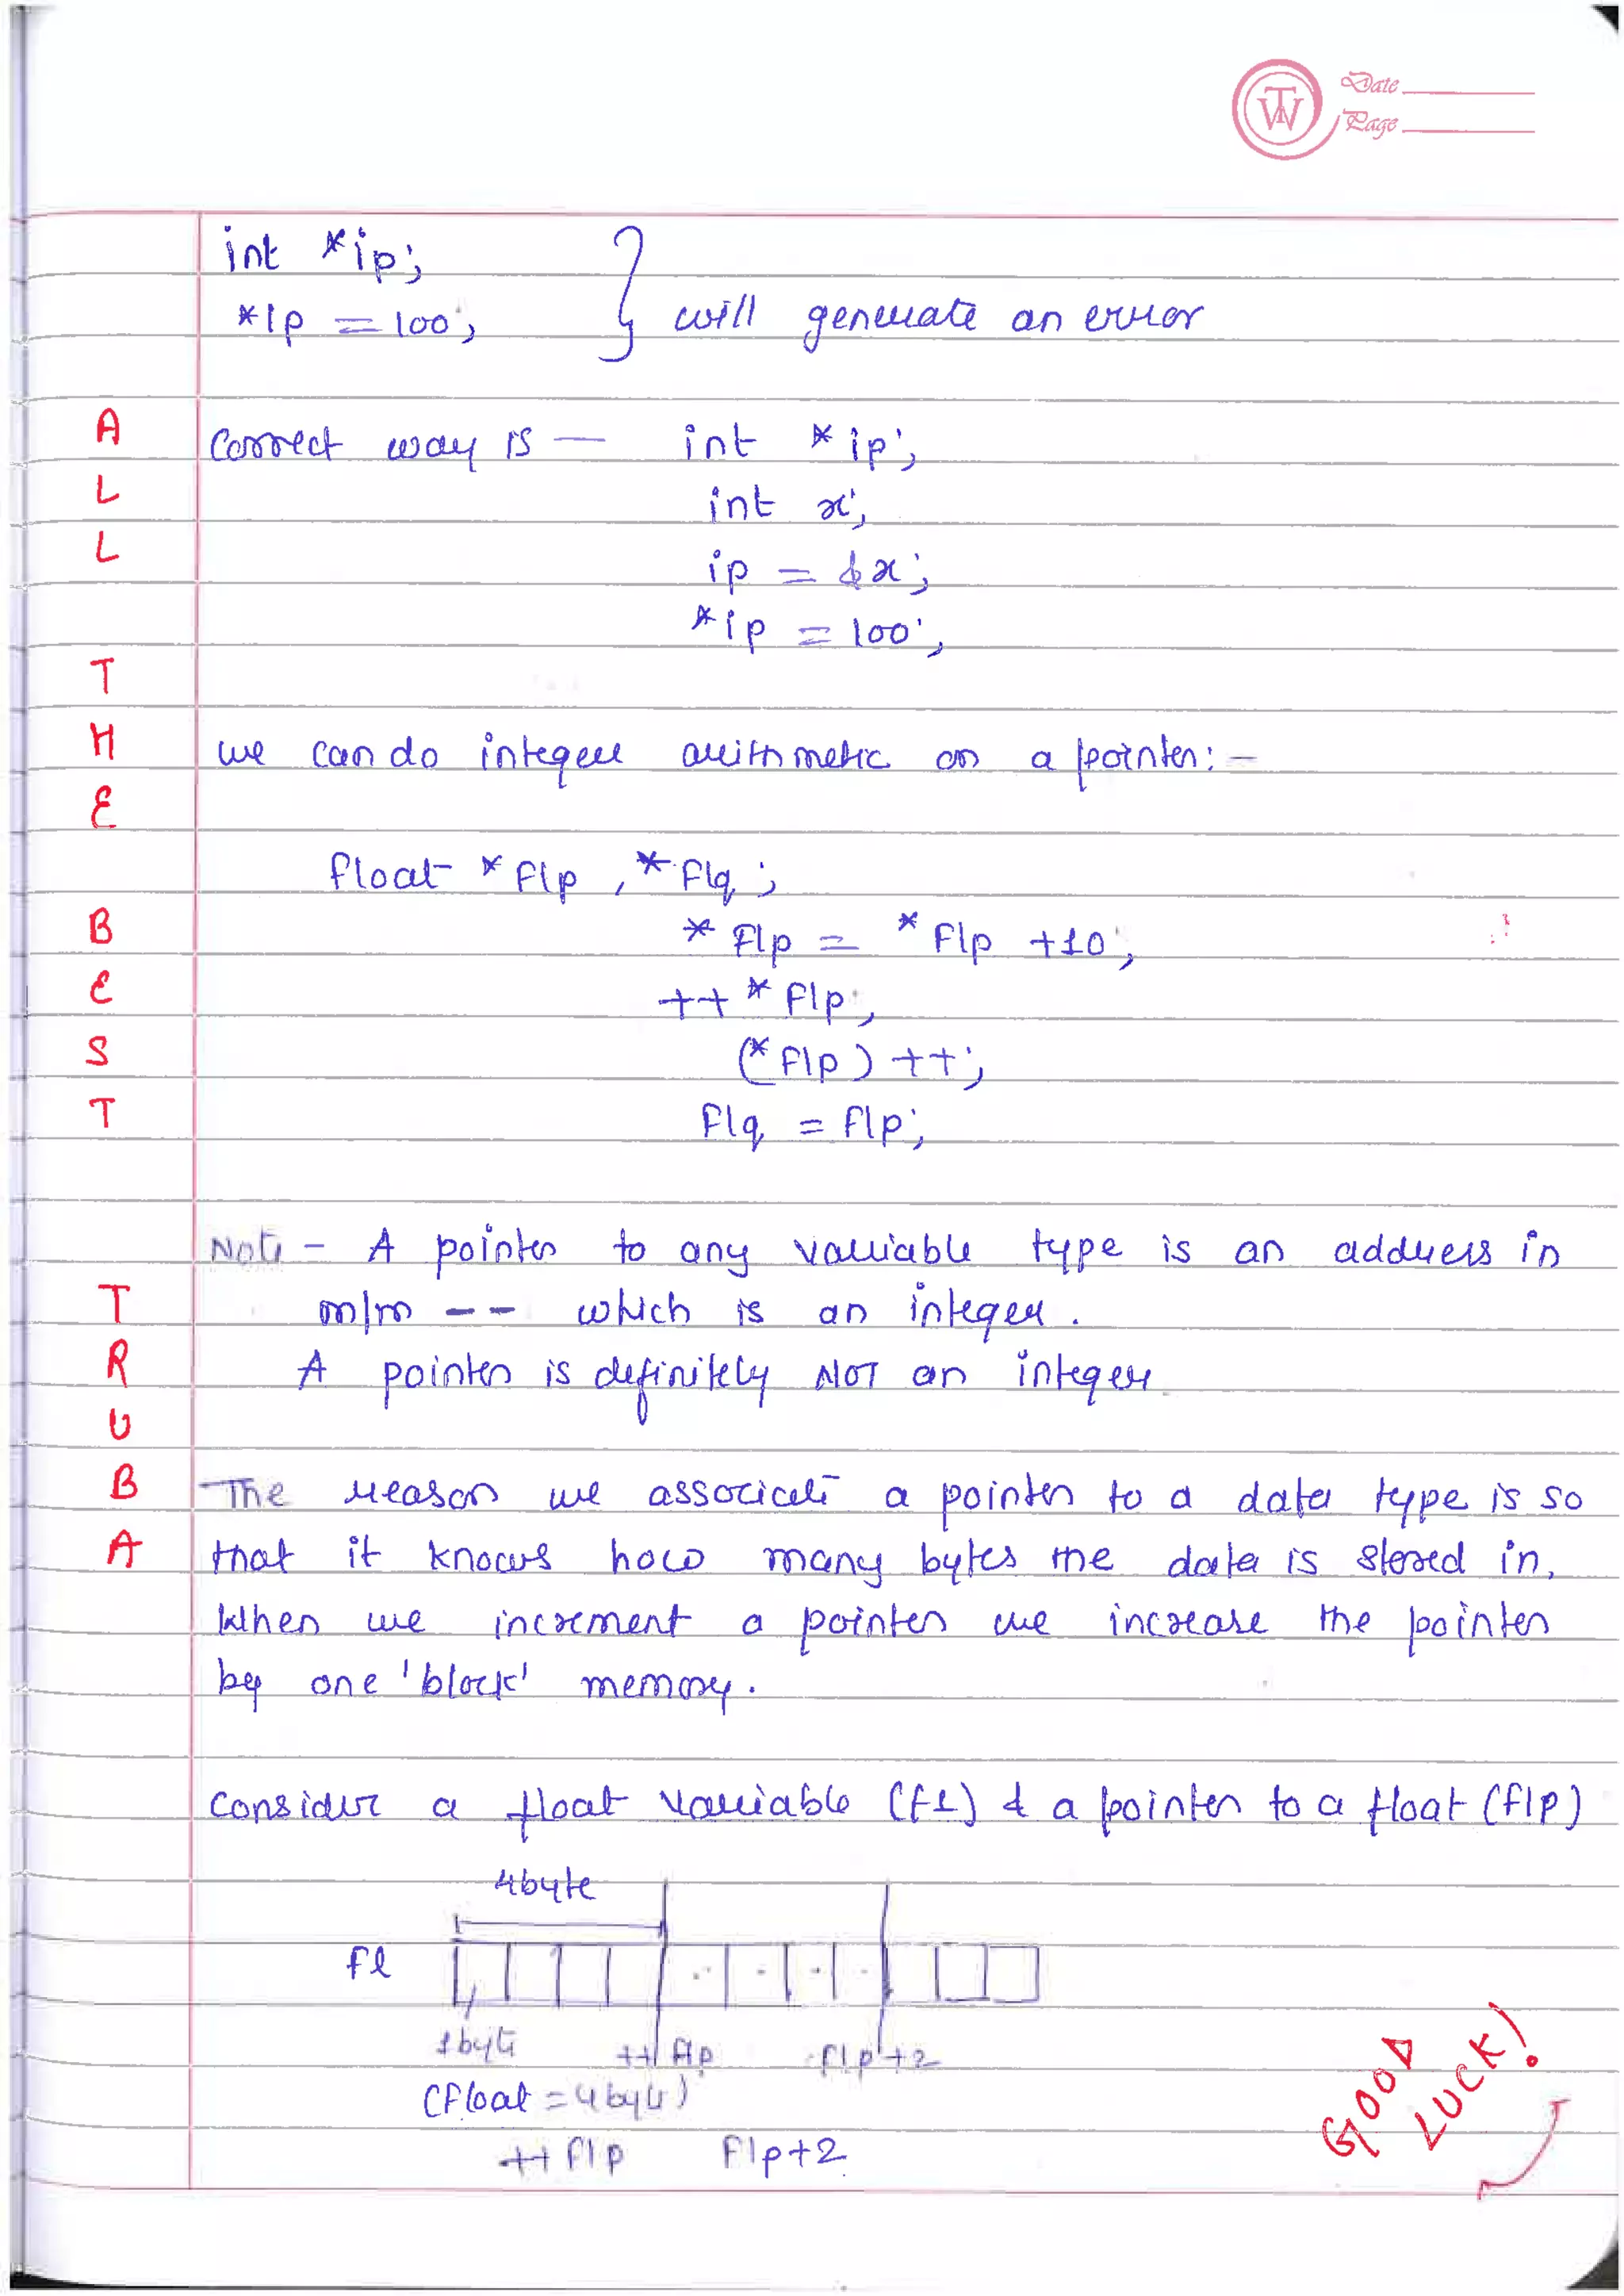 Date
Page
int *ip;
*ip = 100; } will generate an error
Correct way is — int *ip;
int x;
ip = &x;
*ip = 100;
we can do integer arithmetic on a pointer:-
float *flp, *flq;
*flp = *flp +10;
++*flp;
(*flp)++;
flq = flp;
Note - A pointer to any variable type is an address in
m/m -- which is an integer.
A pointer is definitely NOT an integer
The reason we associate a pointer to a data type is so
that it knows how many bytes the data is stored in.
When we increment a pointer we increase the pointer
by one 'block' memory.
Consider a float variable (fl) & a pointer to a float (flp)
4byte
fl
1byte ++flp flp+2
(Float = 4byte)
++flp flp+2
ALL
THE
BEST
TRUBA
GOOD
LUCK!